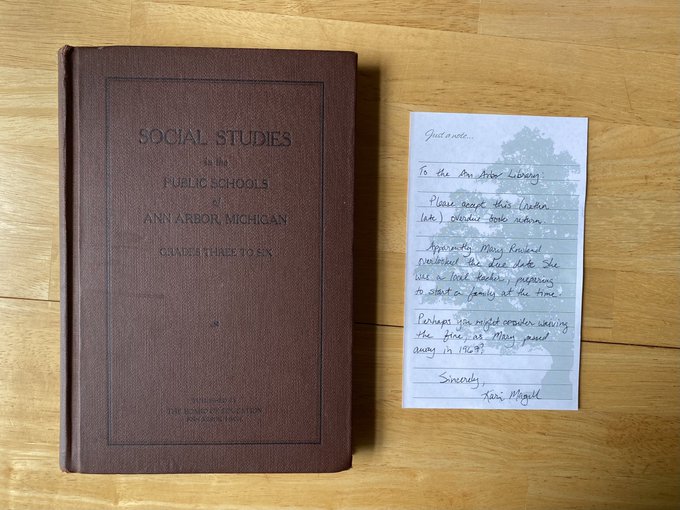 SOCIAL STUDIES
in the
PUBLIC SCHOOLS
of
ANN ARBOR, MICHIGAN
GRADES THREE TO SIX
PUBLISHED BY
THE BOARD OF EDUCATION
ANN ARBOR, MICH.
Just a note...
To the Ann Arbor Library:
Please accept this (rather
late) overdue book return.
Apparently Mary
overlooked the due date. She
was a local teacher, preparing
to start a family at the time.
Perhaps you might consider waiving
the fine, as Mary passed
away in
Sincerely,
Kari Magill